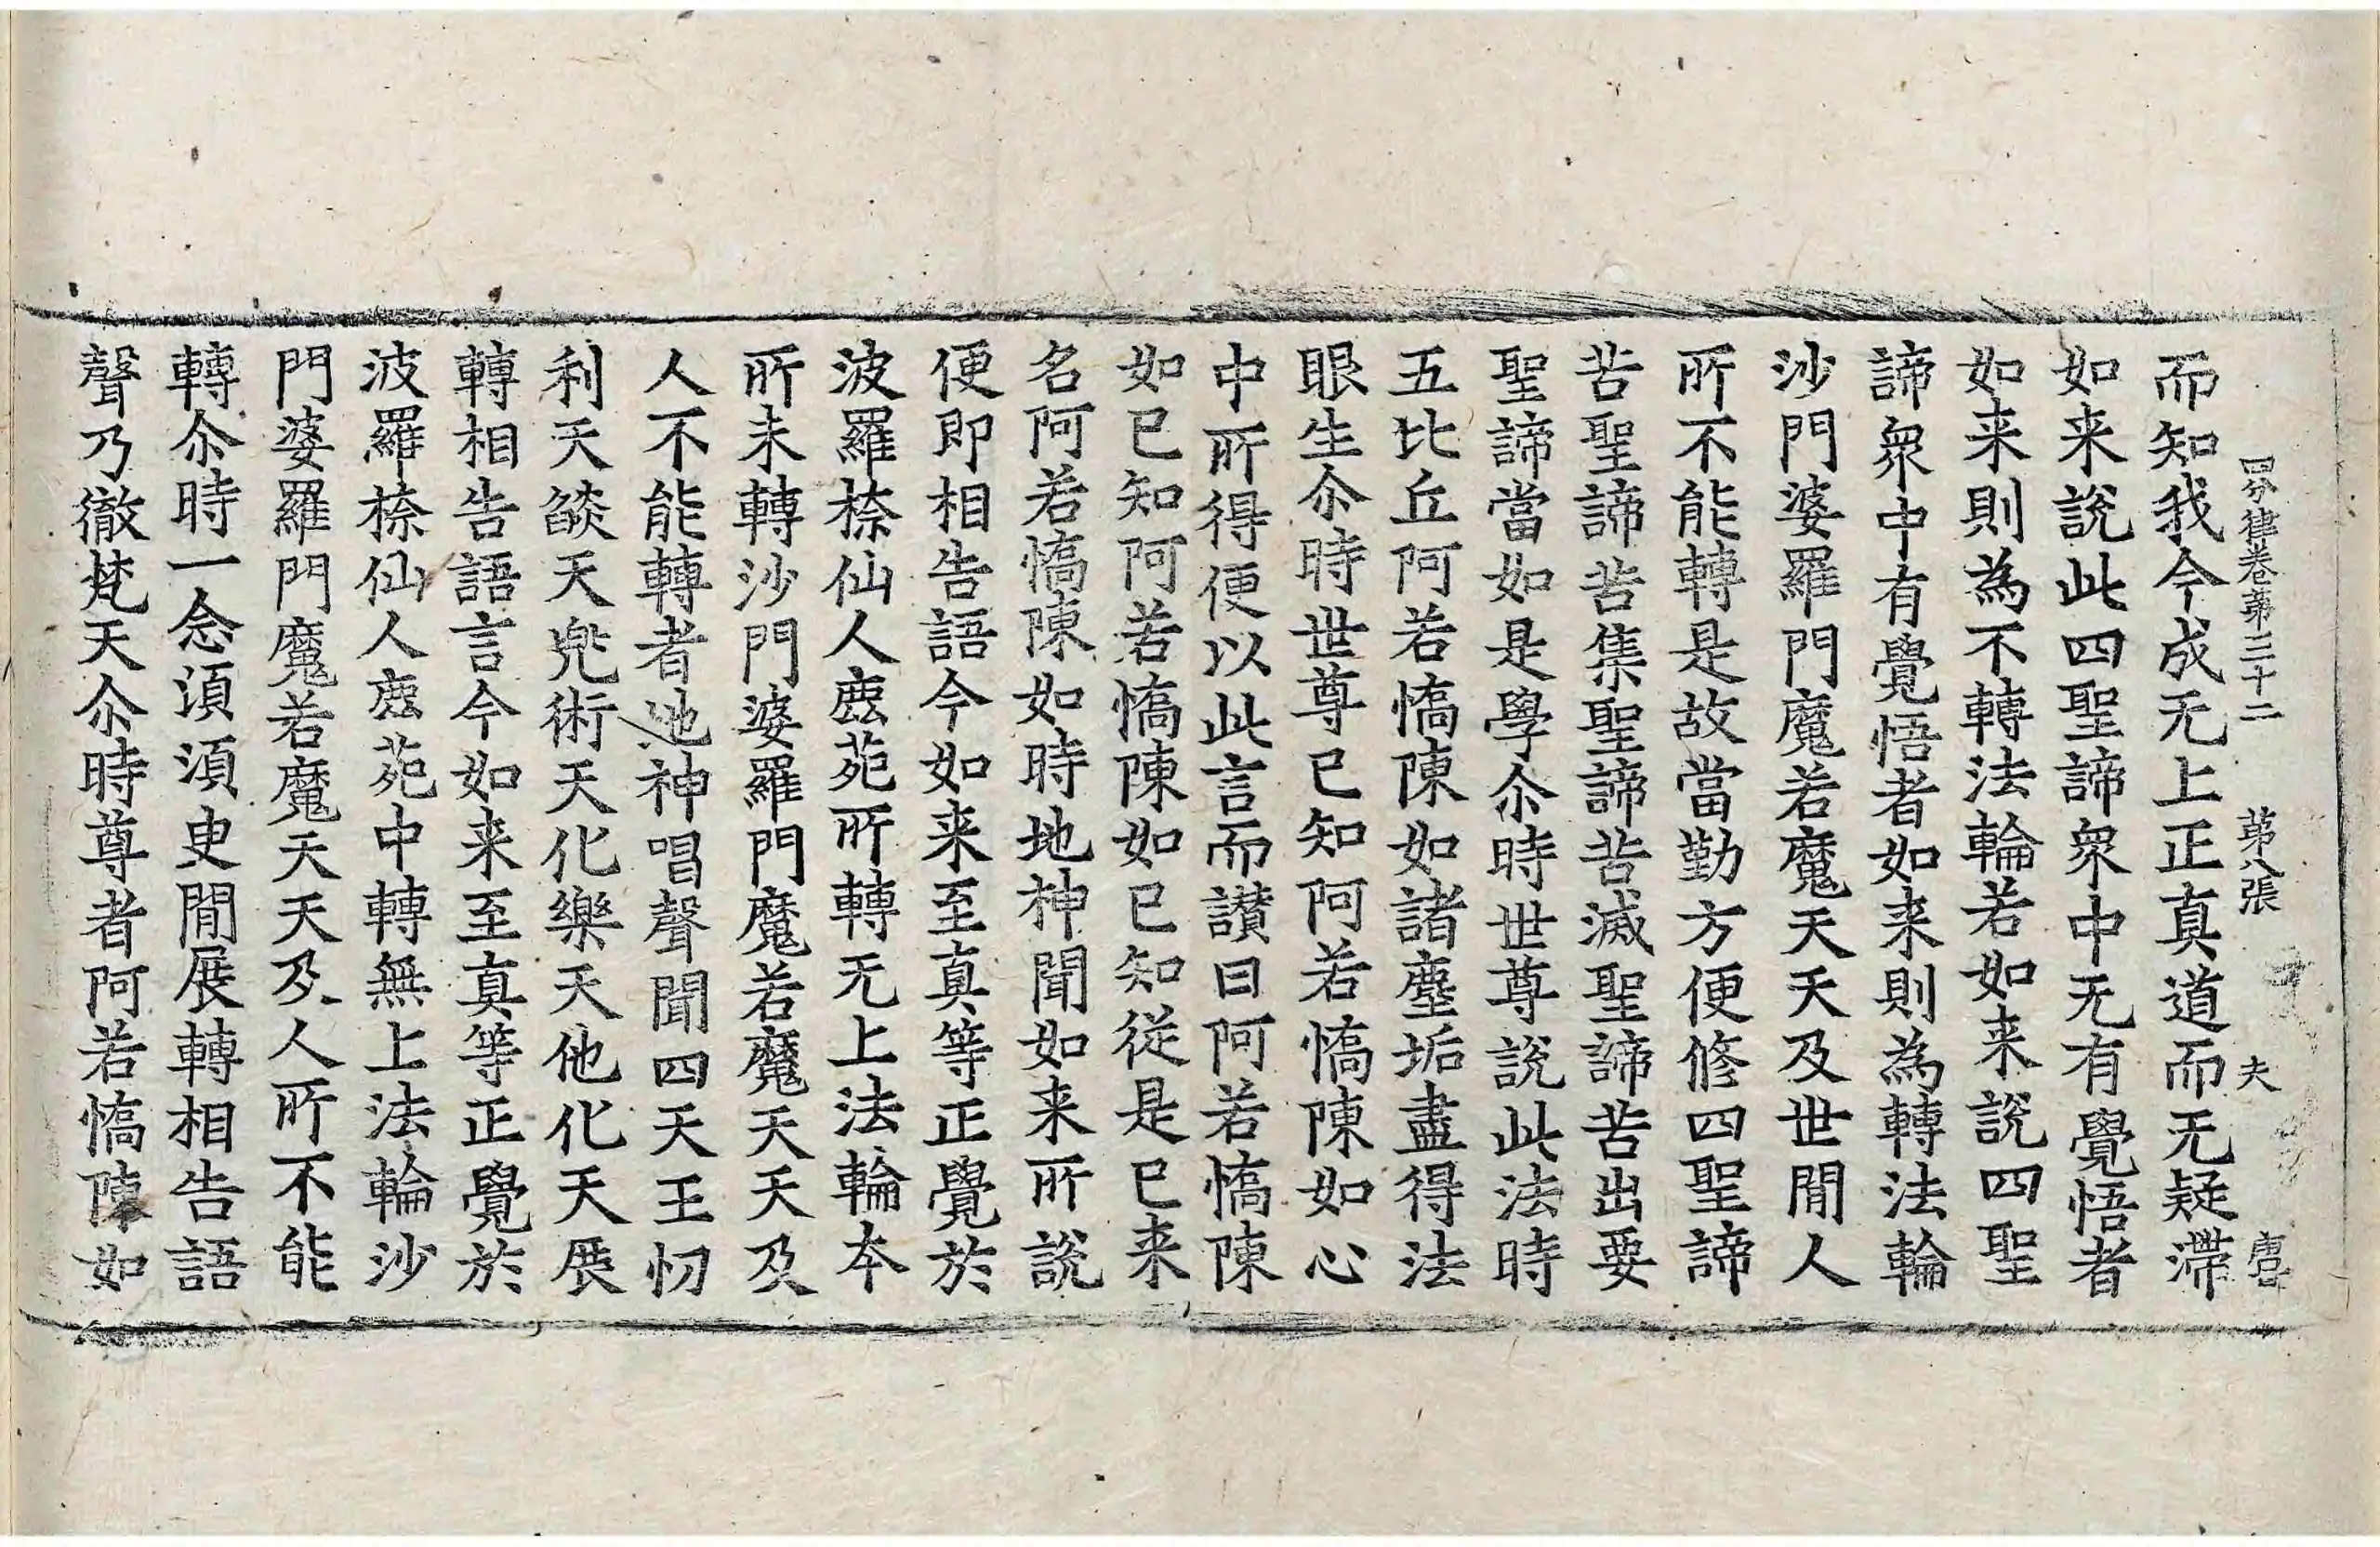 四分律卷第三十二 第八張 夫
而知我今成无上正真道而无疑滯
如来說此四聖諦衆中无有覺悟者
如来則為不轉法輪若如来說四聖
諦衆中有覺悟者如来則為轉法輪
沙門婆羅門魔若魔天天及世閒人
所不能轉是故當勤方便修四聖諦
苦聖諦苦集聖諦苦滅聖諦苦出要
聖諦當如是學尒時世尊說此法時
五比丘阿若憍陳如諸塵垢盡得法
眼生尒時世尊已知阿若憍陳如心
中所得便以此言而讃曰阿若憍陳
如已知阿若憍陳如已知從是已来
名阿若憍陳如時地神聞如来所說
便即相告語今如来至真等正覺於
波羅㮈仙人鹿苑所轉无上法輪本
所未轉沙門婆羅門魔若魔天天及
人不能轉者地神唱聲聞四天王忉
利天燄天兠術天化樂天他化天展
轉相告語言今如来至真等正覺於
波羅㮈仙人鹿苑中轉無上法輪沙
門婆羅門魔若魔天天及人所不能
轉尒時一念須須臾閒展轉相告語
聲乃徹梵天尒時尊者阿若憍陳如